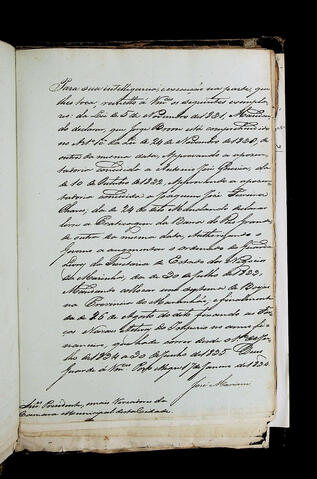 Para sua intelligencia, e execução na parte, que
lhes toca, remetto á Vm.ces os seguintes exempla-
res: da Lei de 5 de Novembro de 1831 Mandan-
do declarar, que Jorge Broom está comprehendido
no Art. 10 da Lei de 24 de Novembro de 1830; de
outra da mesma data, Approvando a aposen-
tadoria concedida a Antonio José
de 10 de Outubro de 1832, Approvando a aposen-
tadoria concedida a Joaquim José Ferreira
Chaves, da de 24 de
bem a Praticagem da Barra do Rio Grande,
de outra da mesma data, Authorizando o
Governo a augmentar o ordenado do
da Secretaria de Estado dos Negocios
da Marinha, da de 20 de Julho de 1833,
Mandando collocar um
na Provincia do Maranhão, e finalmente
da de 26 de Agosto do dito fixando as For-
ças Navaes no anno fi-
nanceiro, que hade correr desde o 1.º de Ju-
lho de 1834 a 30 de Junho de 1835. Deos
Guarde á Vm.ces Porto Alegre 17 de Janeiro de 1834
José Mariani
Snr.es Presidente, e mais Vereadores da
Camara Municipal desta Cidade.